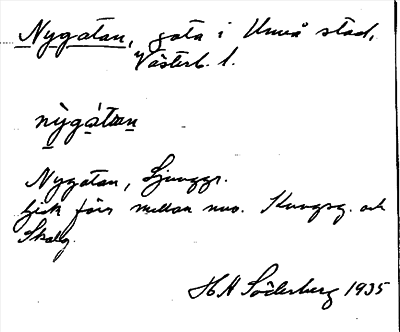 Nygatan, gata i Umeå stad,
Västerb. l.
nỳgá̀tan
Nygatan, Ljunggr.
gick förr mellan nuv. Kungsg. och
Skolg.
H H Söderberg 1935